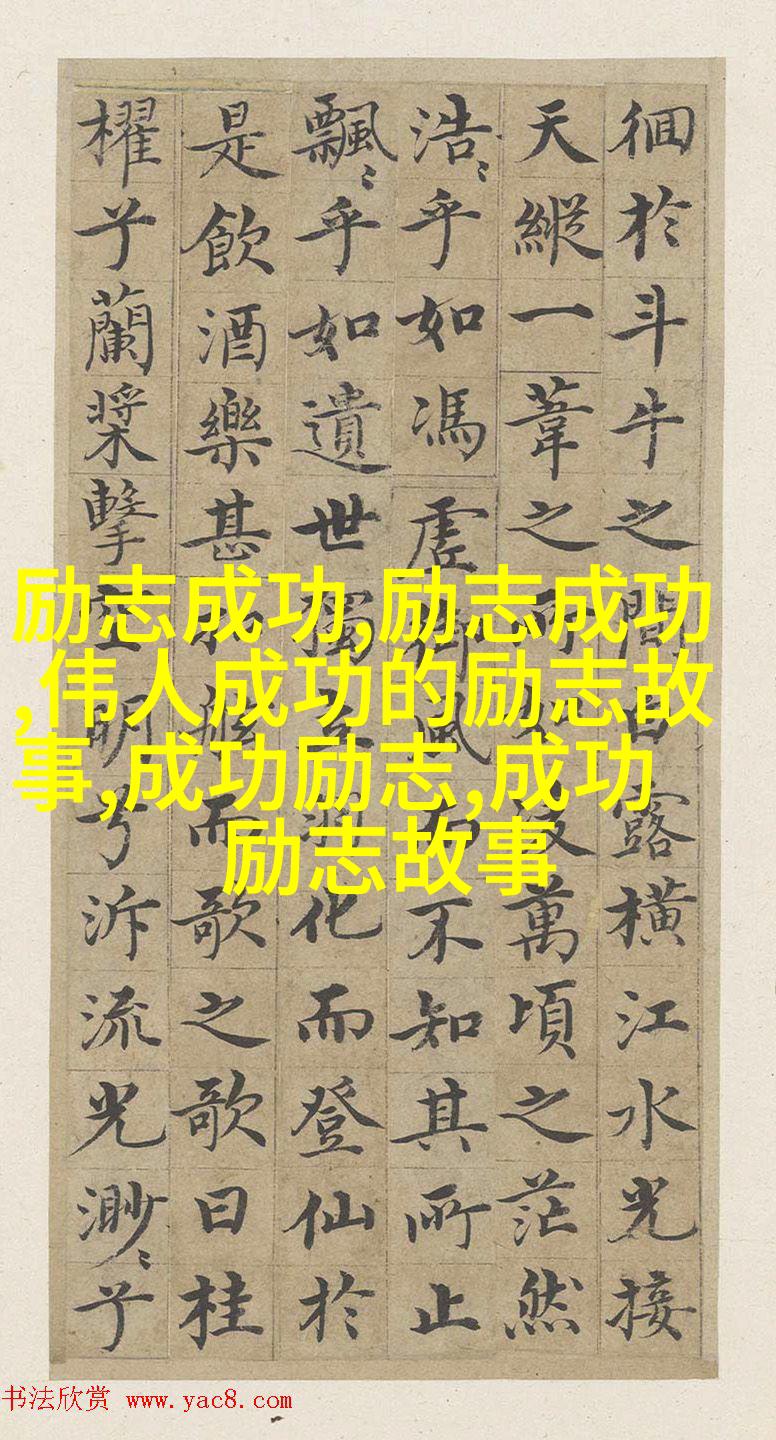 徊於斗牛之間白露橫江水光接
天縱一葦之所如凌萬頃之茫然
浩〻乎如馮虛御風而不知其所止
飄〻乎如遺世獨立羽化而登仙於
是飲酒樂甚扣舷而歌之歌曰桂
櫂兮蘭槳擊空明兮泝流光渺〻兮
励志成功,励志成功
,伟人成功的励志故
事,成功励志,成功
励志故事
书法欣赏 www.yac8.com